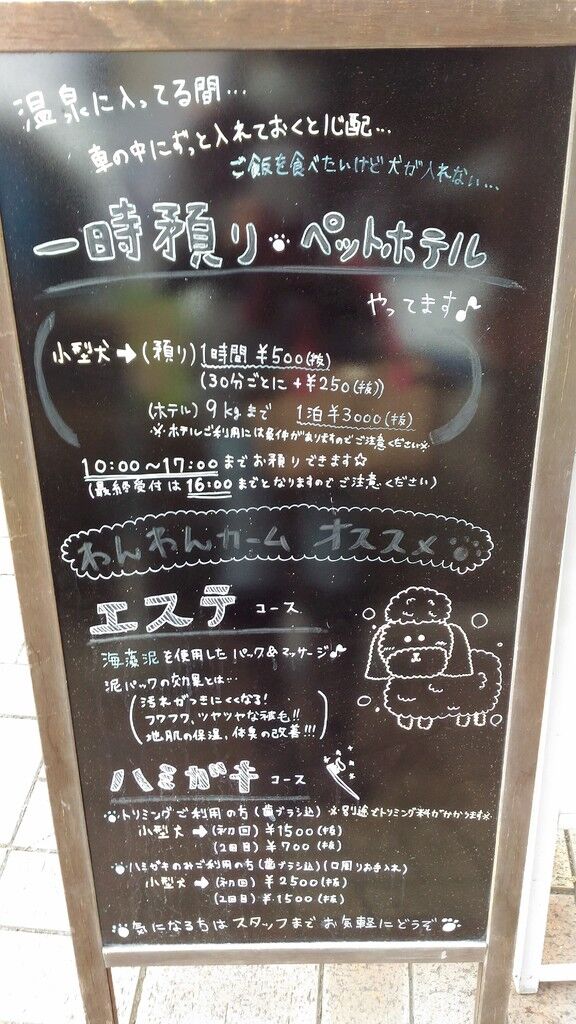 温泉に入ってる間…
車の中にずっと入れておくと心配…
ご飯を食べたいけど犬が入れない…
一時預り・ペットホテル
やってます♪
小型犬➡(預り)1時間 ¥500(抜)
(30分ごとに +¥250(抜))
(ホテル) 9kgまで 1泊¥3000(抜)
※ホテルご利用には条件がありますのでご注意ください※
10:00〜17:00までお預りできます☆
(最終受付は16:00までとなりますのでご注意ください)
わんわんカーム オススメ
エステ コース
海藻泥を使用したパック&マッサージ♪
泥パックの効果とは…
汚れがつきにくくなる!
フワフワ、ツヤツヤな被毛!!
地肌の保湿、体臭の改善!!!
ハミガキ コース
トリミングご利用の方(歯ブラシ込) ※別途でトリミング料がかかります※
小型犬→(初回)¥1500(抜)
(2回目)¥700(抜)
ハミガキのみご利用の方(歯ブラシ込)(口周りお手入れ)
小型犬→(初回)¥2500(抜)
(2回目)¥1500(抜)
気になる方はスタッフまでお気軽にどうぞ